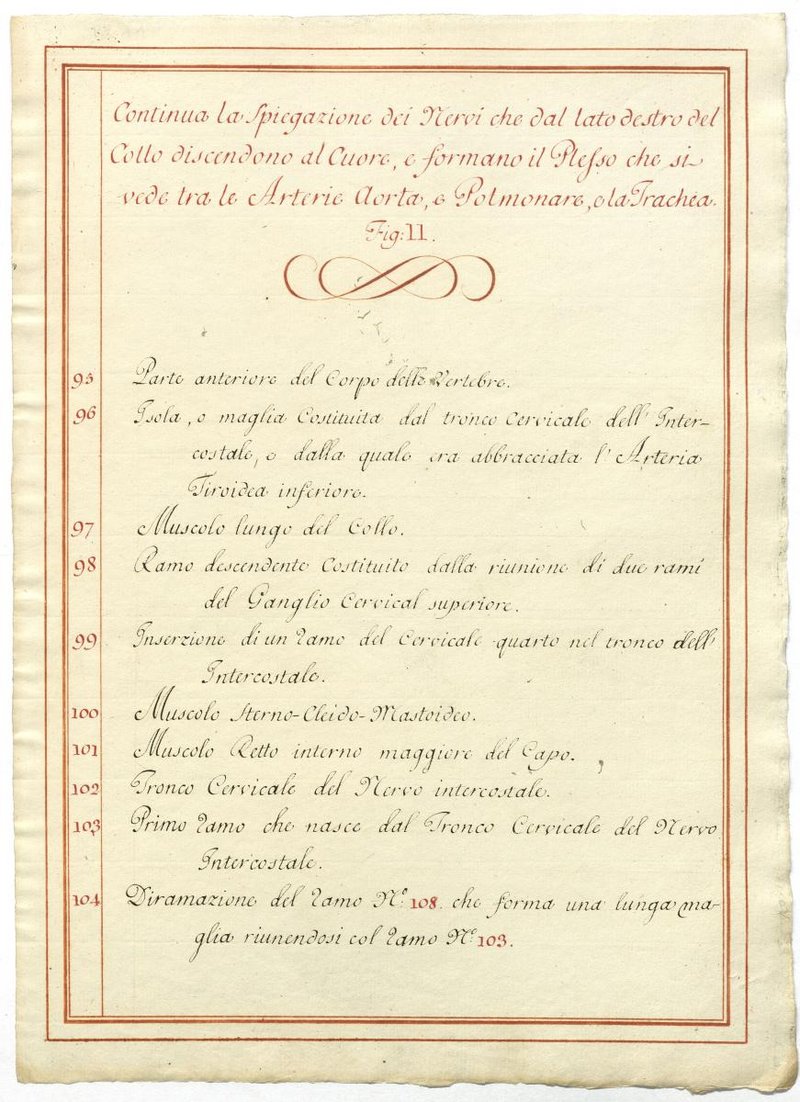 Continua la Spiegazione dei Nervi che dal lato destro del
Collo discendono al Cuore, e formano il Plesso che si
vede tra le Arterie Aorta, e Polmonare, e la Trachea.
Fig: 11.
95 Parte anteriore del Corpo delle Vertebre.
96 Isola, o maglia Costituita dal tronco Cervicale dell' Inter-
costale, e dalla quale era abbracciata l' Arteria
Tiroidea inferiore.
97 Muscolo lungo del Collo.
98 Ramo descendente Costituito dalla riunione di due rami
del Ganglio Cervical superiore.
99 Inserzione di un ramo del Cervicale quarto nel tronco dell'
Intercostale.
100 Muscolo Sterno-Cleido-Mastoideo.
101 Muscolo Retto interno maggiore del Capo.
102 Tronco Cervicale del Nervo intercostale.
103 Primo ramo che nasce dal Tronco Cervicale del Nervo
Intercostale.
104 Diramazione del ramo N.º 108. che forma una lunga ma-
glia riunendosi col ramo N.º 103.